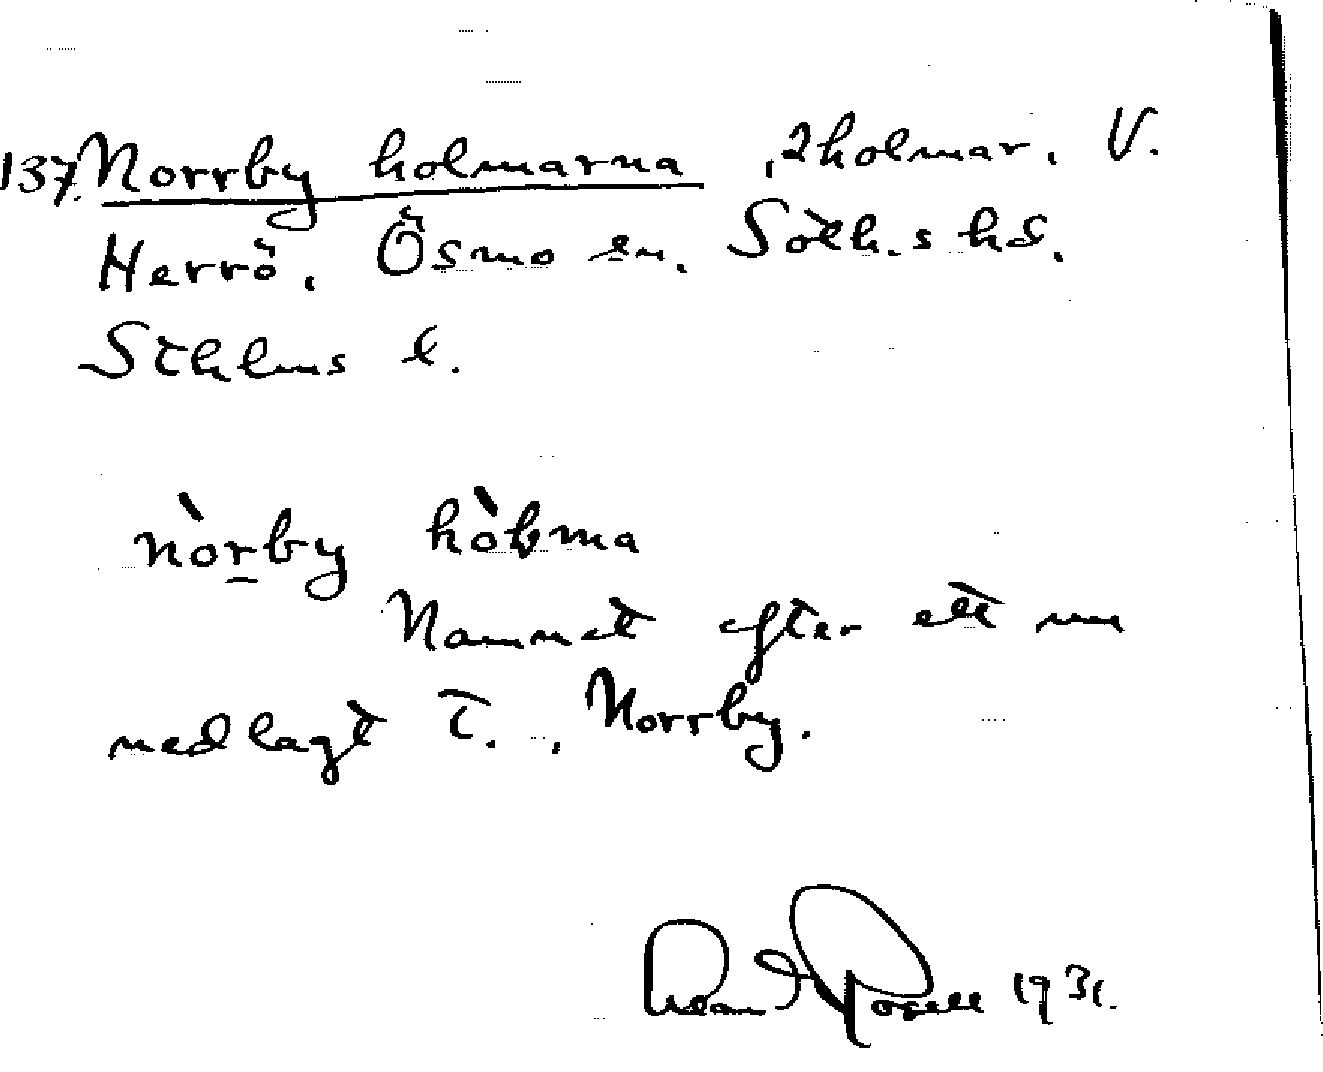 137. Norrby holmarna, 2 holmar. V.
Herrö, Ösmo sn. Soth.s hd.
Sthlms l.
nòrby hòlma
Namnet efter ett nu
nedlagt t., Norrby.
1931.